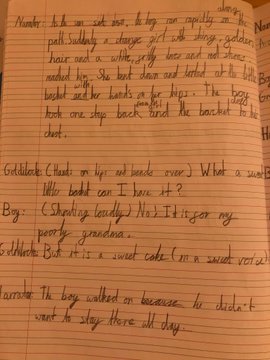 along
Narrator: As the sun set down, the boy ran rapidly on the
path. Suddenly a strange girl with shiny, golden
hair and a white, frilly dress and red shoes
She bent down and looked at the little
basket with her hands on her hips. The boy
took one step back and the basket to his
chest.
Goldilocks: (Hands on hips and bends over) What a sweet
little basket can I have it?
Boy: (Shouting loudly) No! It is for my
poorly grandma.
Goldilocks: But it is a sweet cake (in a sweet voice)
Narrator: The boy walked on because he didn't
want to stay there all day.